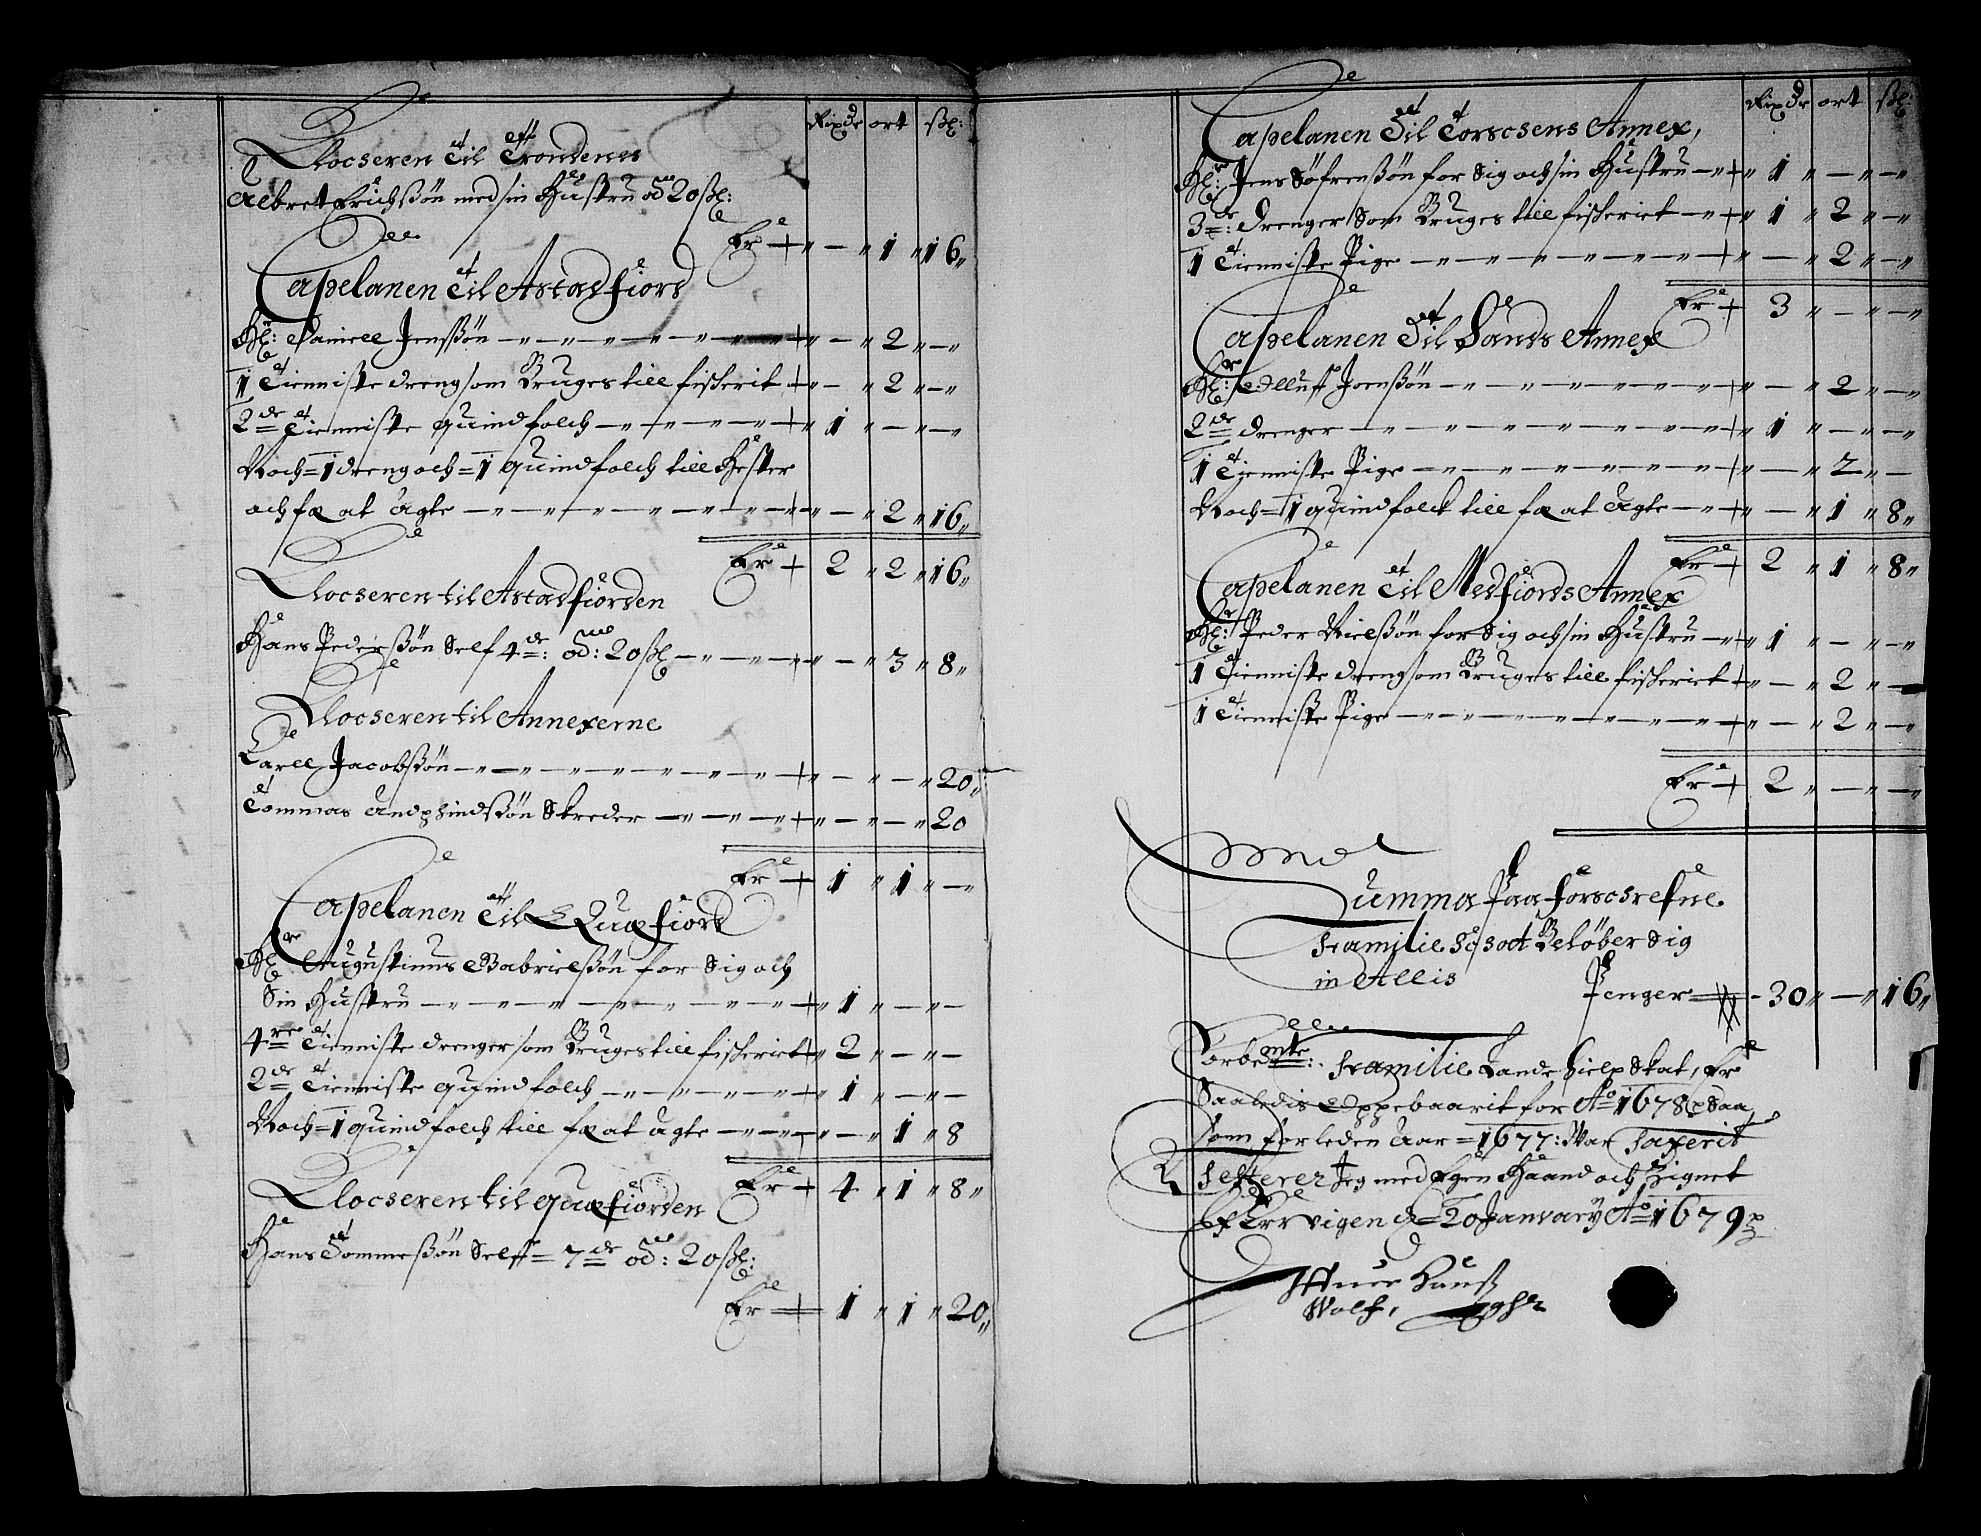 Rixdr ort sk:
Clocheren Til Trondenes
Albret Erichssøn med sin Hustru ad 20 sk:
Er — 1 16
Capelanen Til Astadfiord
Hr: Daniell Jenssøn — 2 —
1 Tienniste dreng som Bruges till fischerit — 2 —
2de Tienniste quindfolch 1 — —
Noch = 1 dreng och = 1 quindfolch till Hester
och fæ at agte — 2 16
Er 2 2 16
Clocheren til Astadfiorden
Hans Pederssøn Self 4de: ad: 20 sk — 3 8
Clocheren til Annexerne
Carell Jacobssøn — — 20
Tommas Andphindssøn Skreder — — 20
Er 1 1 —
Capelanen Til Quæfiord
Hr Augustinus Gabrielssøn for Sig och
Sin Hustru 1 — —
4re Tienniste drenger som Bruges till fischeriet 2 — —
2de Tienniste quindfolch 1 — —
Noch = 1 quindfolch till fæ at agte — 1 8
Er 4 1 8
Clocheren til Quæfiorden
Hans Tommessøn Selff = 7de ad: 20 sk:
Er 1 1 20
Rixdr ort sk:
Capelanen Til Torschens Annex,
Hr: Jens Søfrenssøn for Sig och sin Hustru 1 — —
3de: drenger Som Bruges till fischeriet 1 2 —
1 Tienniste Pige — 2 —
Er 3 — —
Capelanen Til Sands Annex
Hr: Olluff Joenssøn — 2 —
2de drenger 1 — —
1 Tienniste Pige — 2 —
Noch = 1 quindfolck till fæ at agte — 1 8
Er 2 1 8
Capelanen Til Medfiords Annex
Hr: Peder Nielssøn for Sig och sin Hustru 1 — —
1 Tienniste dreng som Bruges till fischeriet — 2 —
1 Tienniste Pige — 2 —
Er 2 — —
Summa Paa forschrefne
Familie Schat Beløber Sig
in Allis
Penger 30 — 16
Forbemte: Familie Landehielp Skat, Er
Saaledis Oppebaarit for Ao 1678 Saa
som forleden Aar = 1677: War Saxerit
Testerer Jeg med Egen Haand och Zignet
Af Errvigen d = 20 January Ao 1679